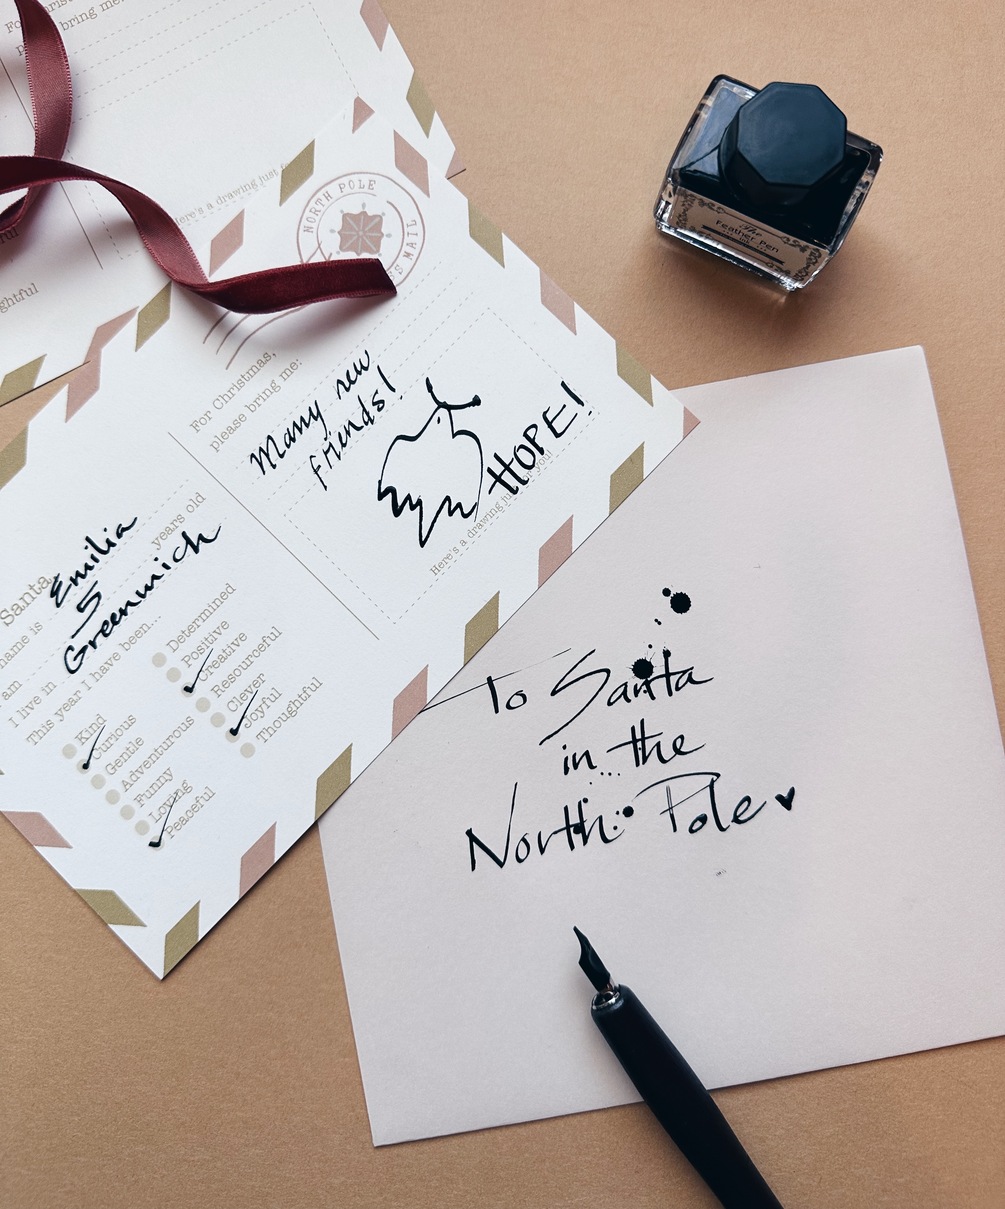 For Christ
bring me:
Here's a drawing just f
ghtful
NORTH POLE
S MAIL
For Christmas,
please bring me:
Many new
friends!
HOPE!
Here's a drawing just for you!
Santa
name is Emilia
am 5 years old
I live in Greenwich
This year I have been...
Kind
Curious
Gentle
Adventurous
Funny
Loving
Peaceful
Determined
Positive
Creative
Resourceful
Clever
Joyful
Thoughtful
The
Feather Pen
To Santa
in the
North Pole